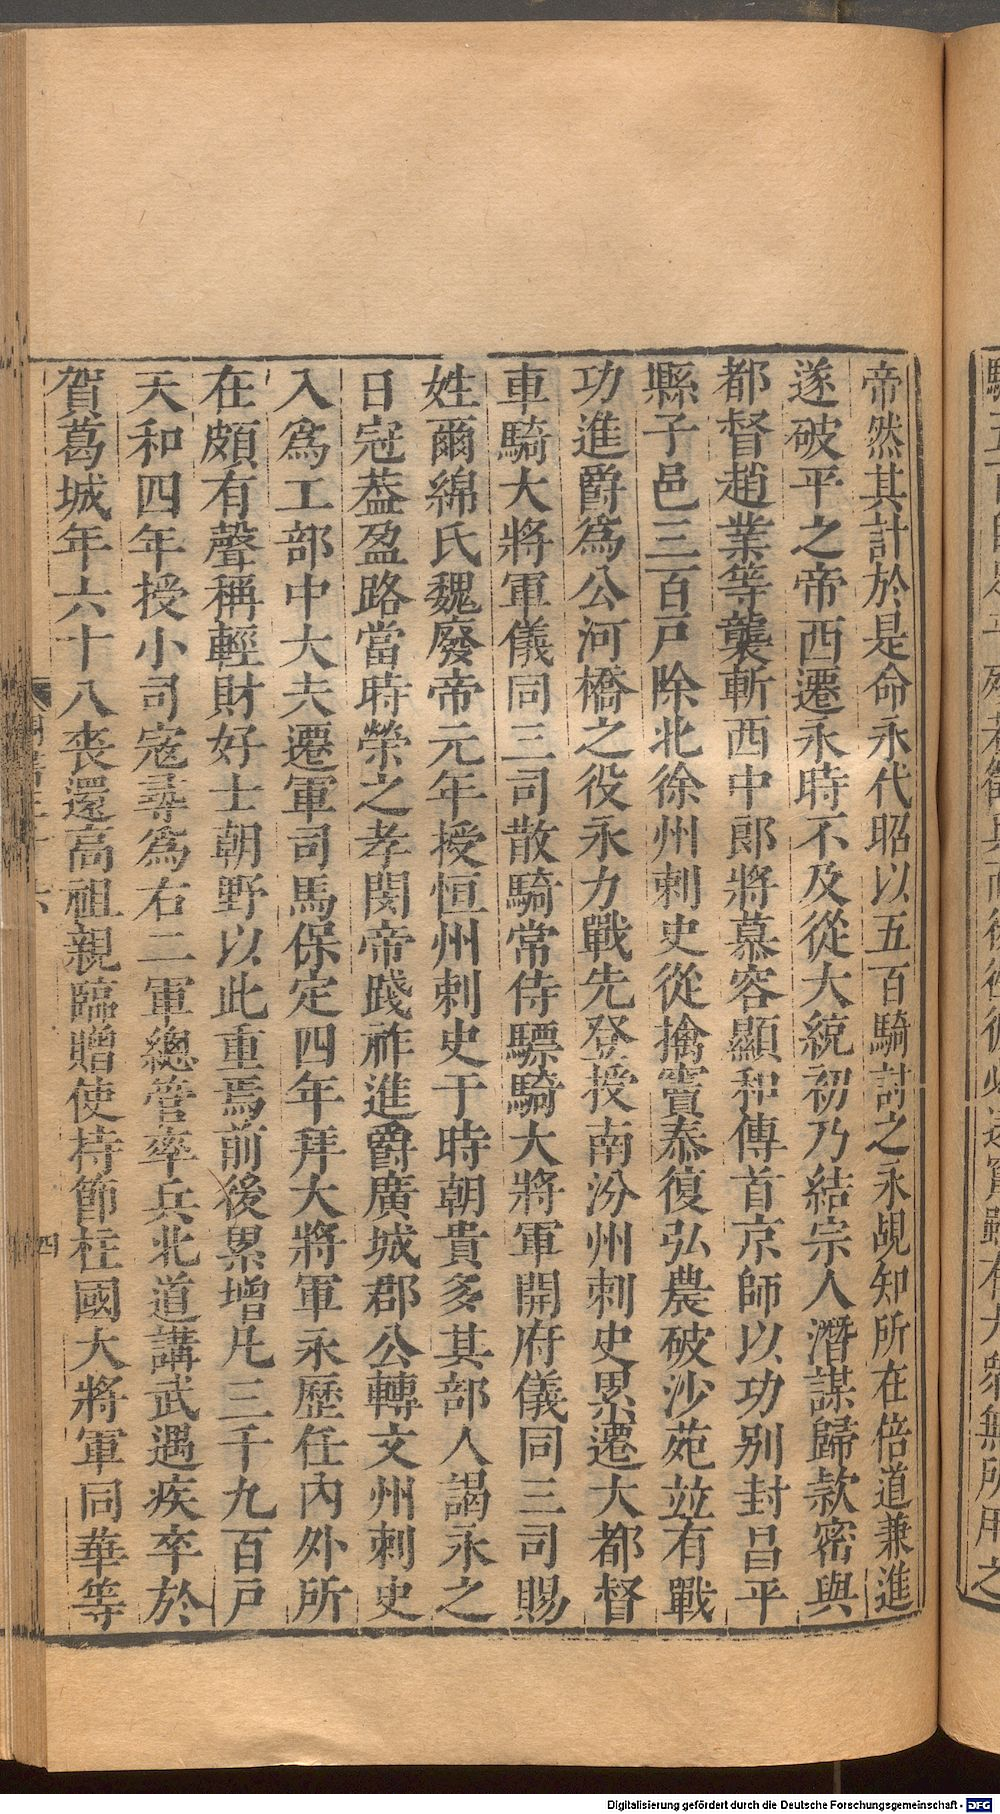 帝然其計於是命永代昭以五百騎討之永覘知所在倍道兼進
遂破平之帝西遷永時不及從大統初乃結宗人潛謀歸款密與
都督趙業等襲斬西中郎將慕容顯和傳首京師以功别封昌平
縣子邑三百戸除北徐州刺史從擒竇泰復弘農破沙苑竝有戰
功進爵爲公河橋之役永力戰先登授南汾州刺史累遷大都督
車騎大將軍儀同三司散騎常侍驃騎大將軍開府儀同三司賜
姓爾綿氏魏廢帝元年授恒州刺史于時朝貴多其部人謁永之
日冠葢盈路當時榮之孝閔帝踐祚進爵廣城郡公轉文州刺史
入爲工部中大夫遷軍司馬保定四年拜大將軍永歷任内外所
在頗有聲稱輕財好士朝野以此重焉前後累增凡三千九百戸
天和四年授小司寇尋爲右二軍總管率兵北道講武遇疾卒於
賀葛城年六十八喪還高祖親臨贈使持節柱國大將軍同華等
四
Digitalisierung gefördert durch die Deutsche Forschungsgemeinschaft - DFG